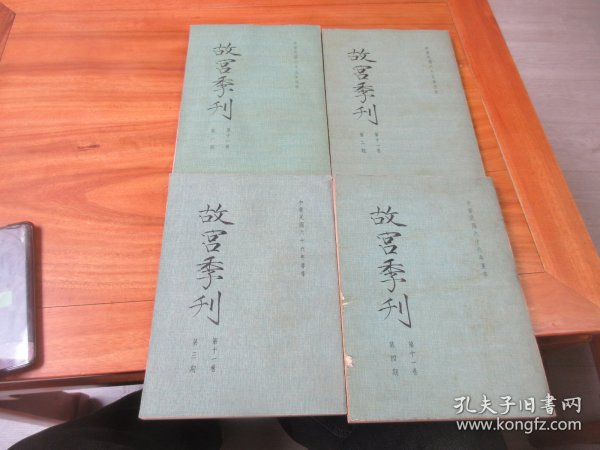 故宮季刊
第十一卷
第一期
故宮季刊
第十一卷
第二期
中華民國六十六年春季
故宮季刊
第十一卷
第三期
故宮季刊
第十一卷
第四期
孔夫子旧书网
www.kongfz.com